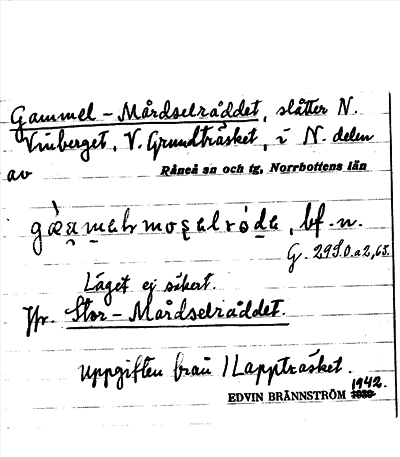 Gammel-Mårdselraddet, slåtter N.
Vinberget, V. Grundträsket, i N. delen
av Råneå sn och tg, Norrbottens län
bf. n.
G. 29S.0.a2,65.
Läget ej säkert.
Jfr. Stor-Mårdselraddet.
Uppgiften från I Lappträsket.
1942.
EDVIN BRÄNNSTRÖM